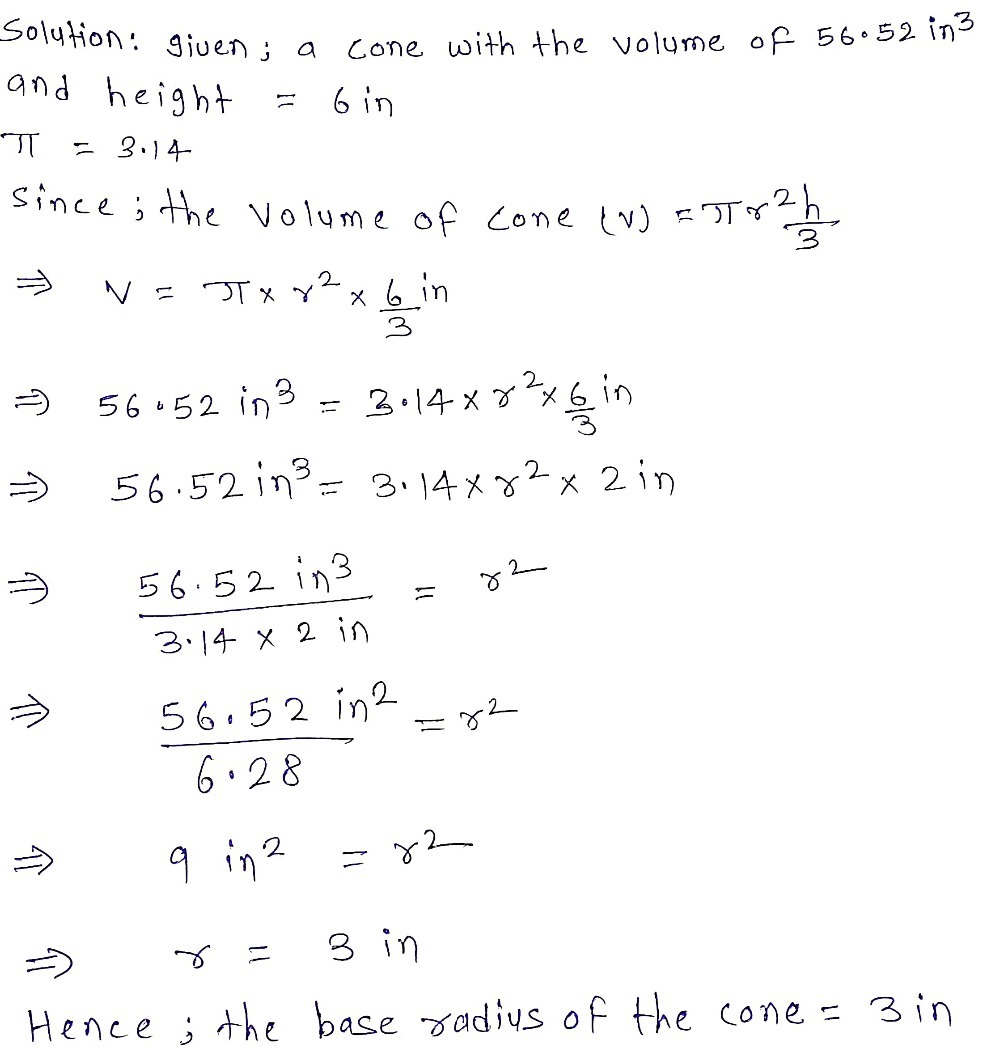 Solution: given; a cone with the volume of 56.52 in³
and height = 6 in
π = 3.14
Since; the volume of cone (v) = πr² h/3
⇒ V = π × r² × 6/3 in
⇒ 56.52 in³ = 3.14 × r² × 6/3 in
⇒ 56.52 in³ = 3.14 × r² × 2 in
⇒ 56.52 in³ / 3.14 × 2 in = r²
⇒ 56.52 in² / 6.28 = r²
⇒ 9 in² = r²
⇒ r = 3 in
Hence; the base radius of the cone = 3 in